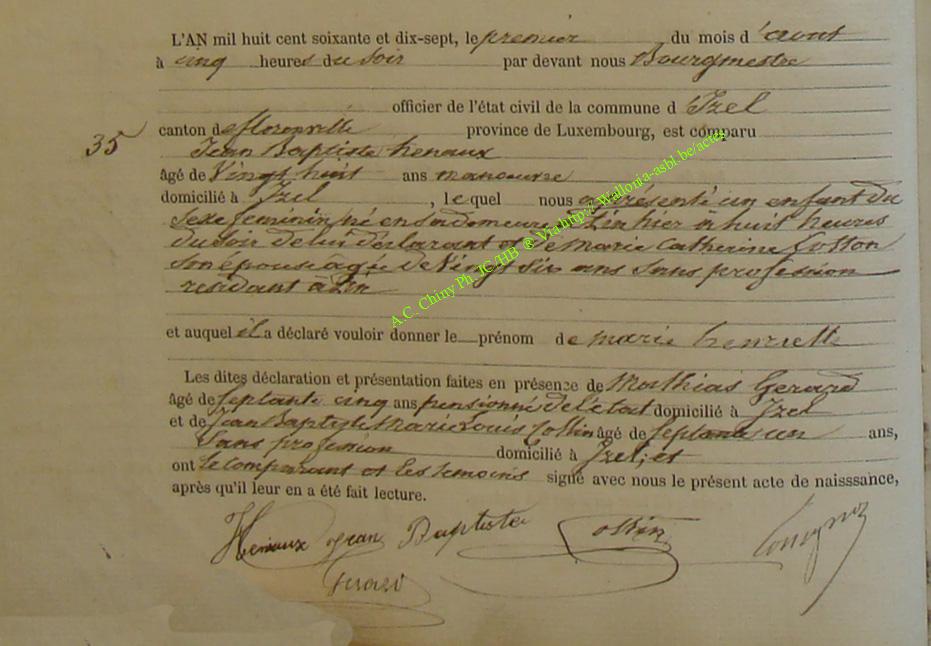 L'AN mil huit cent soixante et dix-sept, le premier du mois d'août
à cinq heures du soir par devant nous Bourgmestre
officier de l'état civil de la commune d Izel
35 canton de florenville province de Luxembourg, est comparu
Jean Baptiste henaux
âgé de Vingt huit ans manœuvre
domicilié à Izel, le quel nous a présenté un enfant du
Sexe feminin, né en sa demeure hier à huit heures
du soir de lui déclarant et de Marie Catherine
son épouse âgée de Vingt Six ans Sans profession
residant à
et auquel il a déclaré vouloir donner le prénom de marie henriette
Les dites déclaration et présentation faites en présence de Mathias Gerard
âgé de Septante cinq ans pensionné de l'état domicilié à Izel
et de Jean Baptiste Marie Louis Collin âgé de Septante un ans,
Sans profession domicilié à Izel; et
ont le comparant et les temoins signé avec nous le présent acte de naisssance,
après qu'il leur en a été fait lecture.
Henaux Jean Baptiste Collin
Gerard
A.C. Chiny Ph. JC/HB ® Via http://Wallonia-asbl.be/actes